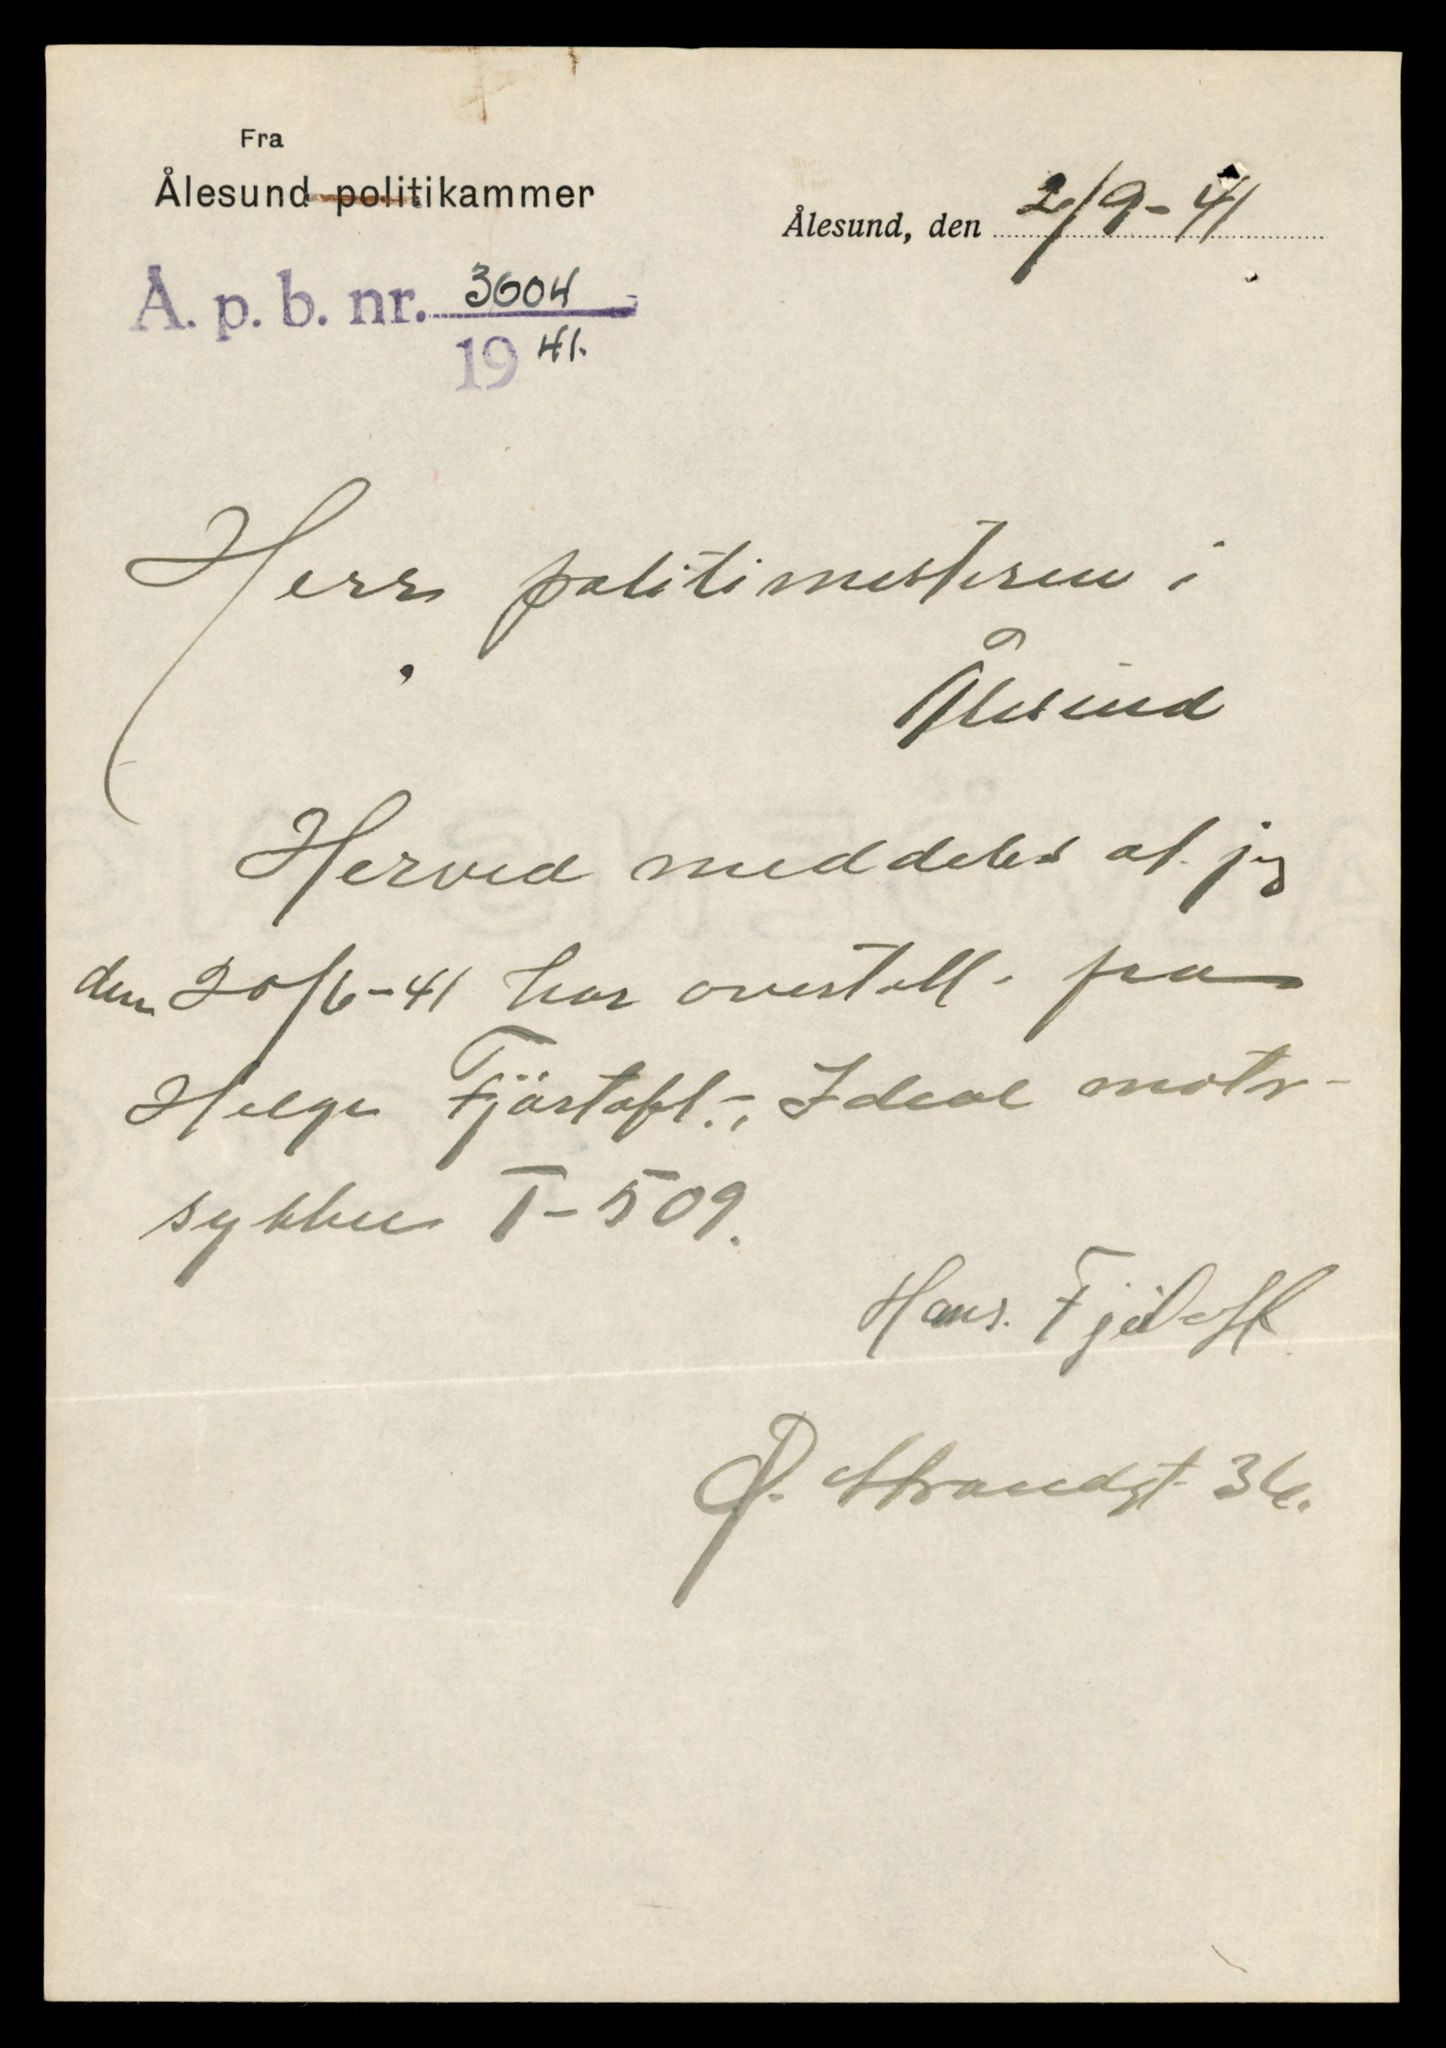 Fra
Ålesund politikammer
Ålesund, den 2/9-41
Å. p. b. nr. 3604
1941.
Herr politimesteren i
Ålesund
Herved meddeles at jeg
den 20/6-41 har overtatt fra
Helge Fjørtoft, Ideal motor-
sykkel T-509.
Hans. Fjørtoft
Ø. Strandgt. 36.